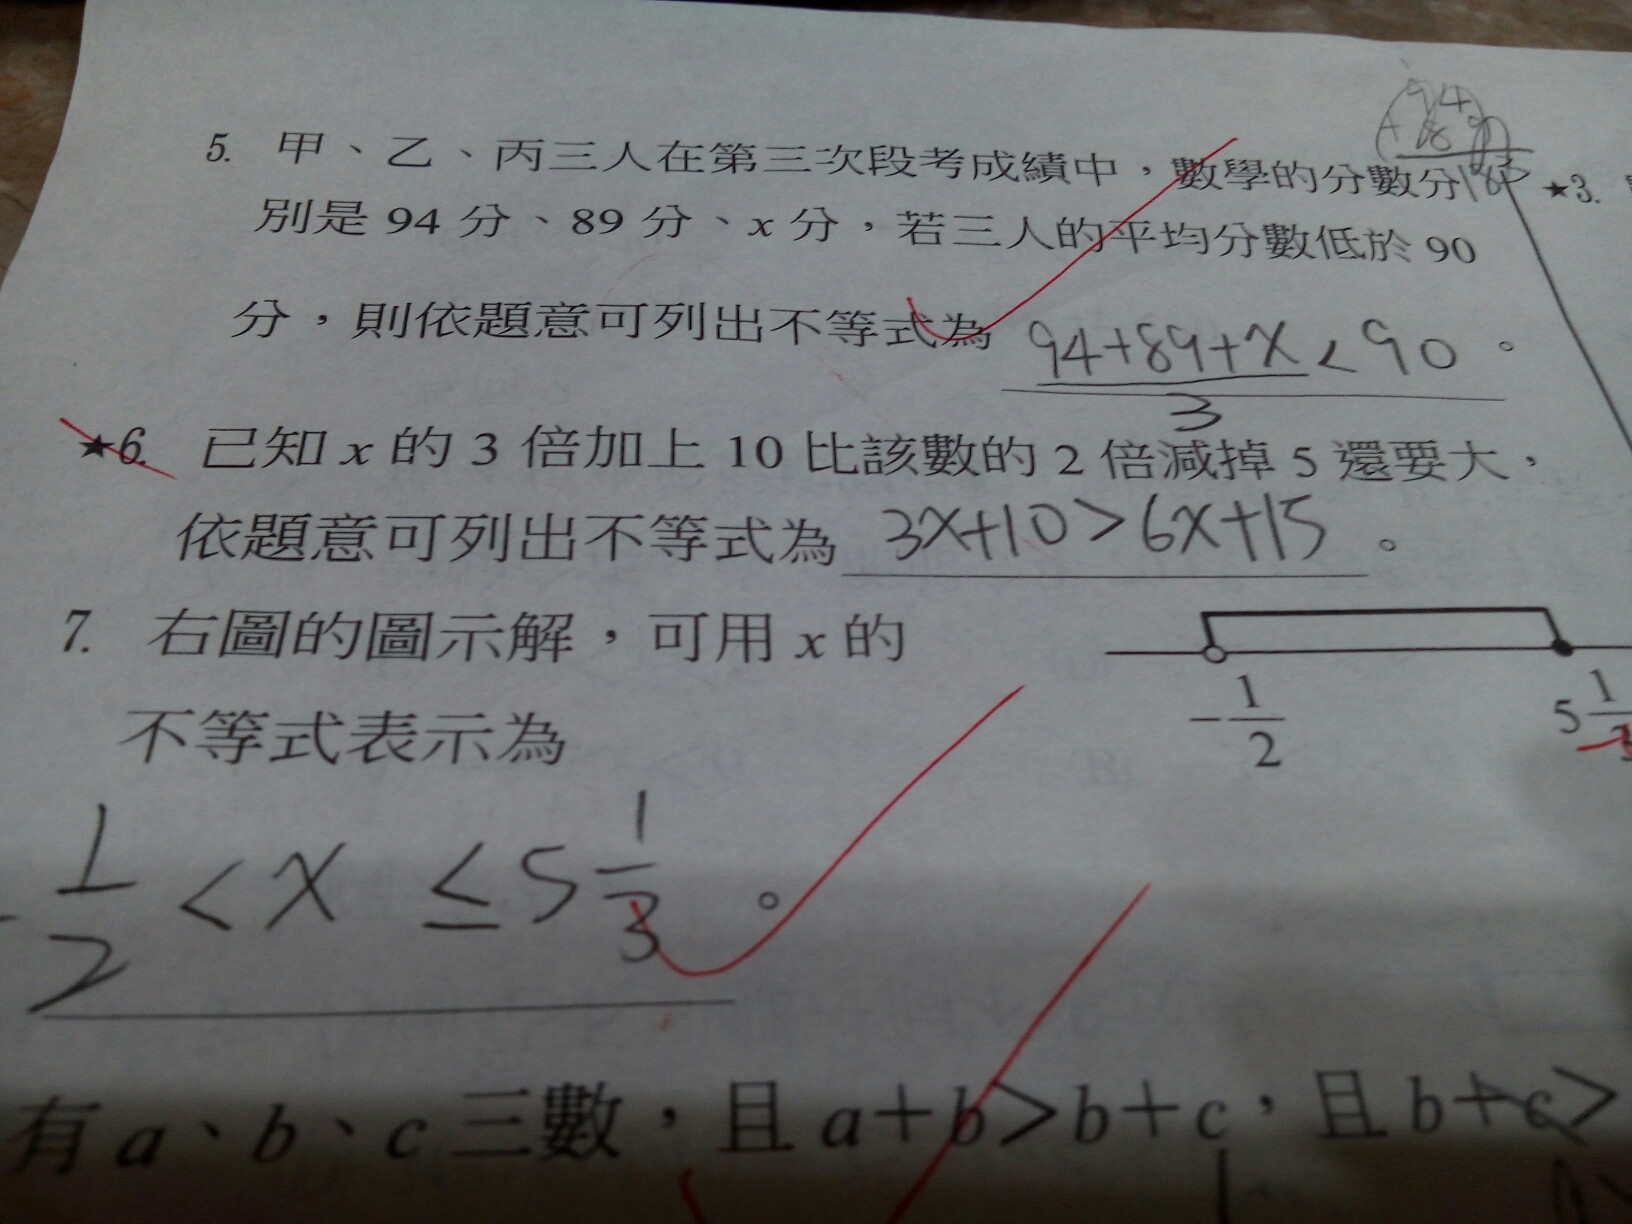 5. 甲、乙、丙三人在第三次段考成績中，數學的分數分
別是 94 分、89 分、x 分，若三人的平均分數低於 90
分，則依題意可列出不等式為 (94+89+x)/3 < 90。
★6. 已知 x 的 3 倍加上 10 比該數的 2 倍減掉 5 還要大，
依題意可列出不等式為 3x+10>6x+15。
7. 右圖的圖示解，可用 x 的
不等式表示為
-1/2 < x ≤ 5 1/3。
-1/2
5 1/3
有 a、b、c 三數，且 a+b>b+c，且 b+c>
94
+ 89
183
★3.